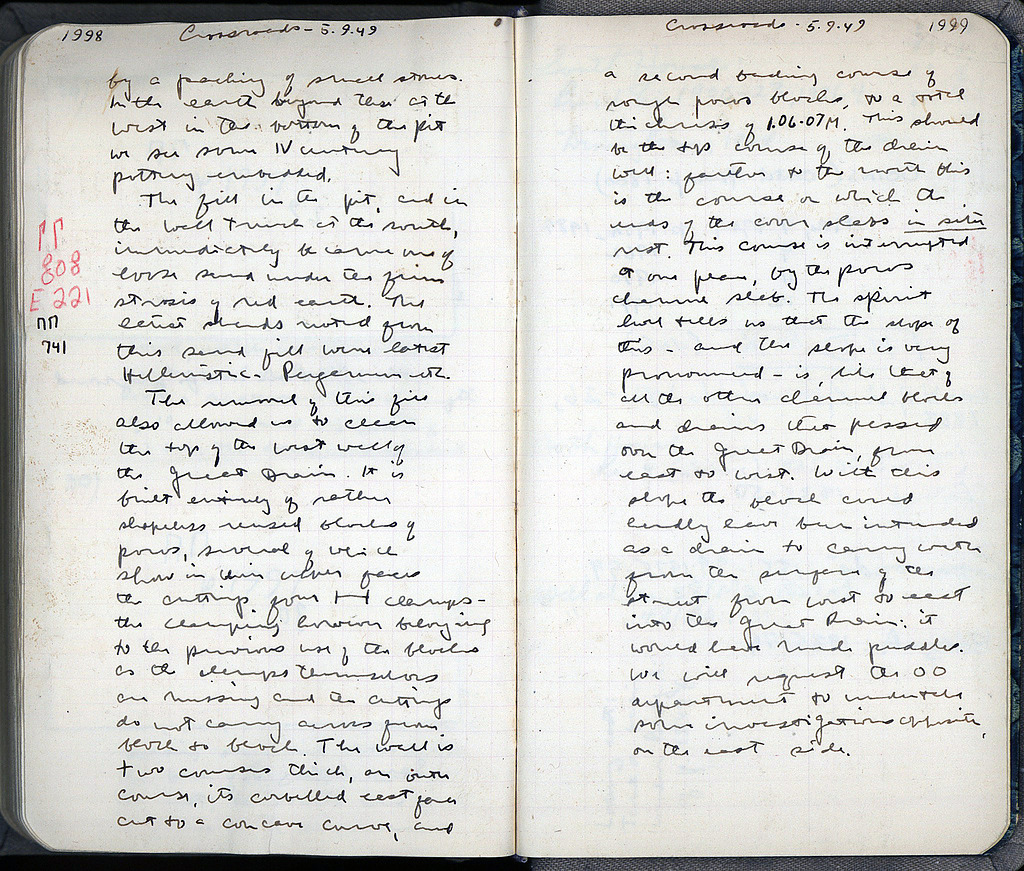 1998 Crossroads - 5.9.49
by a packing of small stones.
In the earth beyond this at the
west in the bottom of the pit
we see some IV century
pottery embedded.
The fill in the pit, and in
the wall trench at the south,
immediately became one of
loose sand under the firm
strosis of red earth. The
latest sherds noted from
this sand fill were latest
Hellenistic - Pergamene etc.
ΠΠ
808
E 221
ΠΠ
741
The removal of this fill
also allowed us to clean
the top of the west wall of
the Great Drain. It is
built entirely of rather
shapeless reused blocks of
poros, several of which
show in their upper faces
the cuttings for H clamps -
the clamping however belonging
to the previous use of the blocks
as the clamps themselves
are missing and the cuttings
do not carry across from
block to block. The wall is
two courses thick, an inner
course, its corbelled east face
cut to a concave curve, and
Crossroads - 5.9.49 1999
a second backing course of
rough poros blocks, to a total
thickness of 1.06-07M. This should
be the top course of the drain
wall: farther to the north this
is the course on which the
ends of the cover slabs in situ
rest. This course is interrupted
at one place, by the poros
channel slab. The spirit
level tells us that the slope of
this - and the slope is very
pronounced - is, like that of
all the other channel blocks
and drains that passed
over the Great Drain, from
east to west. With this
slope the block could
hardly have been intended
as a drain to carry water
from the surface of the
street from west to east
into the Great Drain: it
would have made puddles.
We will request the OO
department to undertake
some investigations opposite,
on the east side.